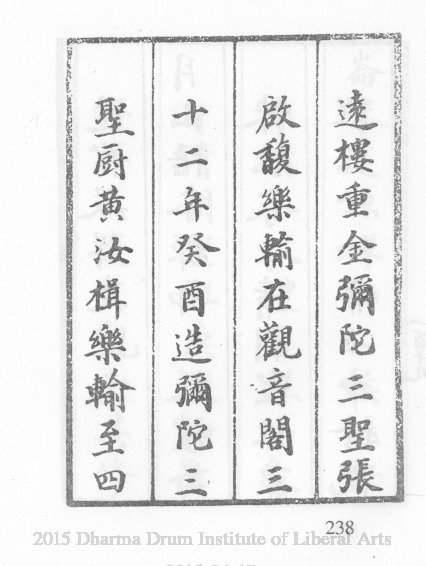 遠樓重金彌陀三聖張
啟馥樂輸在觀音閣三
十二年癸酉造彌陀三
聖厨黄汝楫樂輸至四
238
2015 Dharma Drum Institute of Liberal Arts